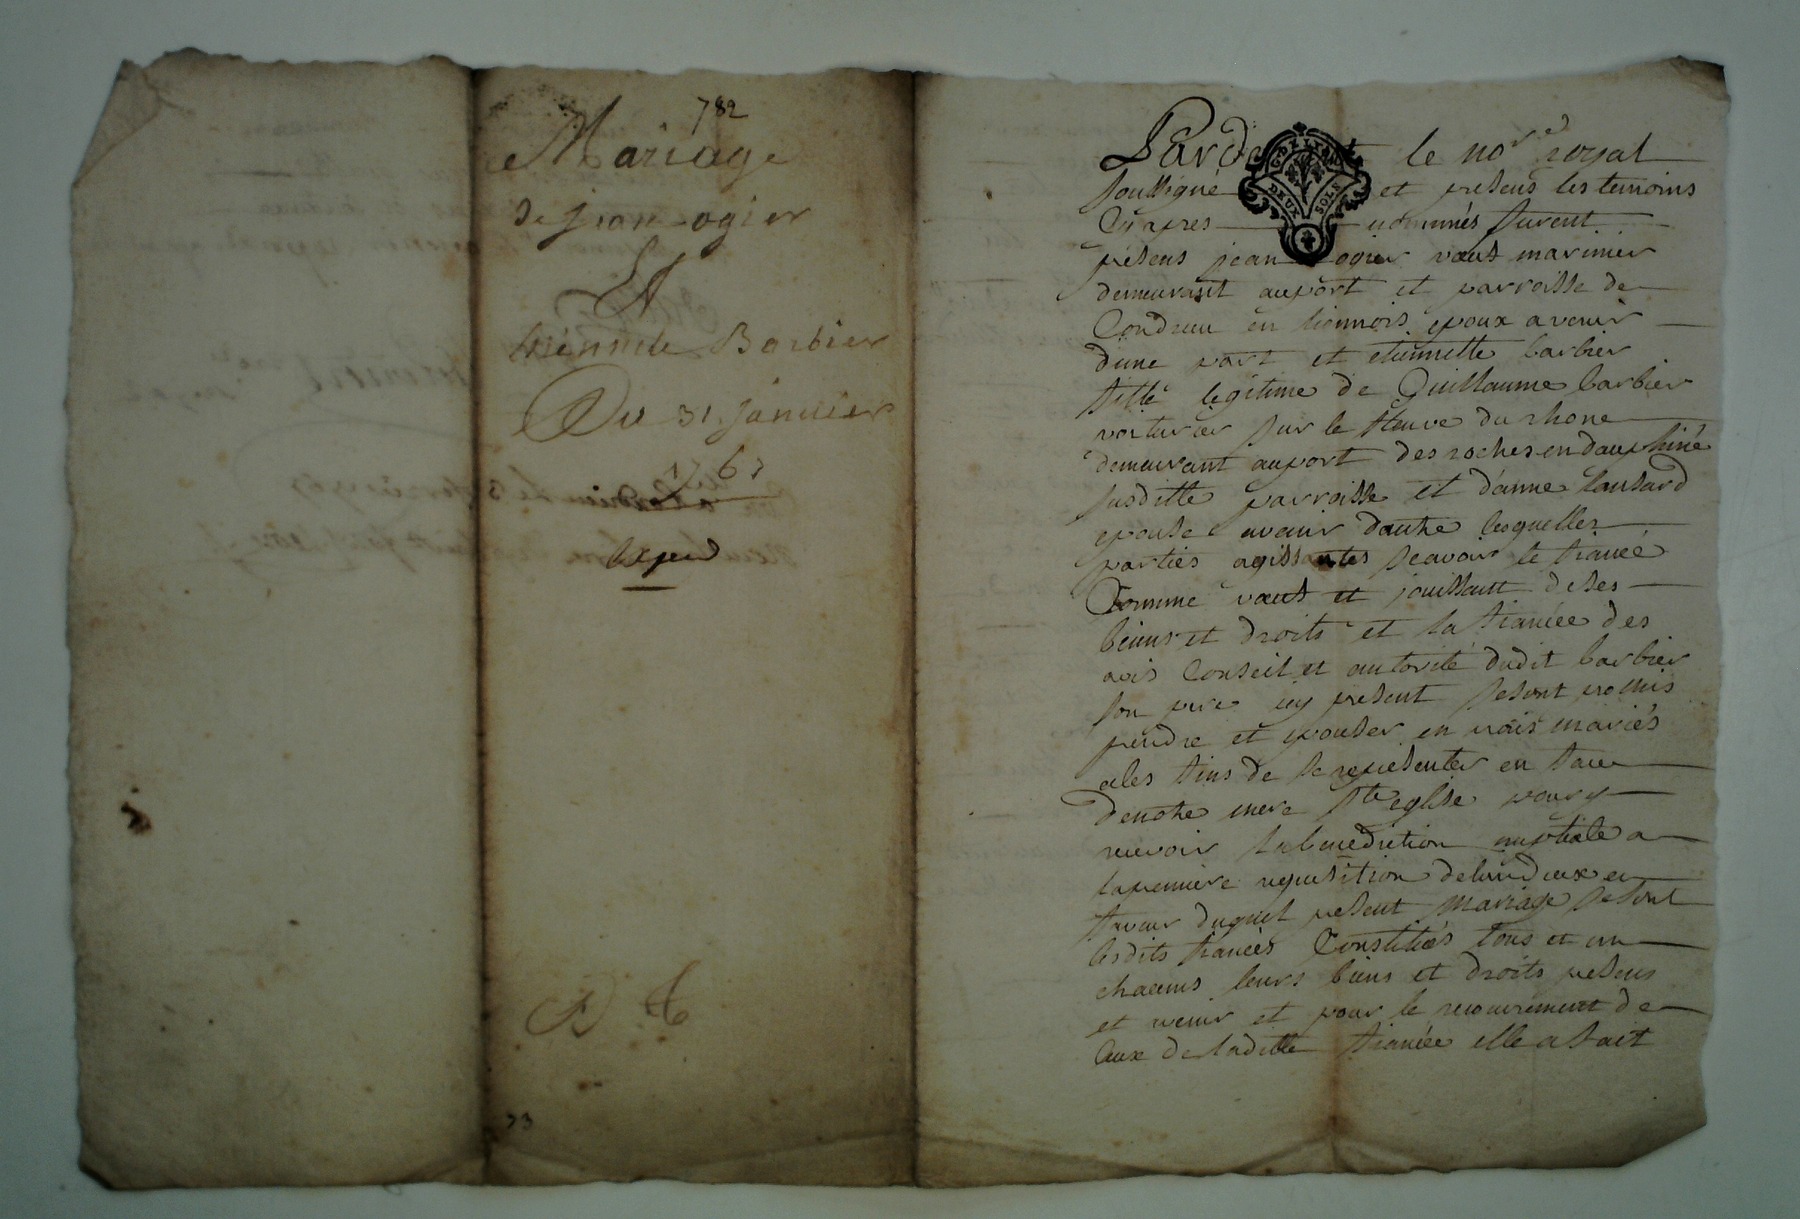 782
Mariage
de jean ogier
Et
Etiennete Barbier
Du 31. janvier
1767
Exped
73
Pardevant le nore royal
soussigné et presens les temoins
Cy apres nommés furent
présens jean ogier vaeuf marinier
demeurant au port et parroisse de
Condrieu en lionnois epoux avenir
dune part et etiennette barbier
fille legitime de Guillaume barbier
voiturier sur le fleuve du rhone
demeurant au port des roches en dauphiné
susditte parroisse et d'anne
epouse avenir dautre lesquelles
parties agissantes scavoir le fiancé
Comme vaeuf et jouissant de ses
biens et droits et la fiancée des
avis Conseil et autorité dudit barbier
son pere icy present se sont promis
prendre et epouser en vrais mariés
ales fins de se representer en face
denotre mere Ste eglise pour y
recevoir la benediction nuptiale a
la premiere requisition delun deux en
faveur duquel present mariage se sont
lesdits fiancés Constitués tous et un
chacuns leurs biens et droits presens
et avenir et pour le recouvrement de
Ceux de laditte fiancée elle a fait
DEUX SOLS